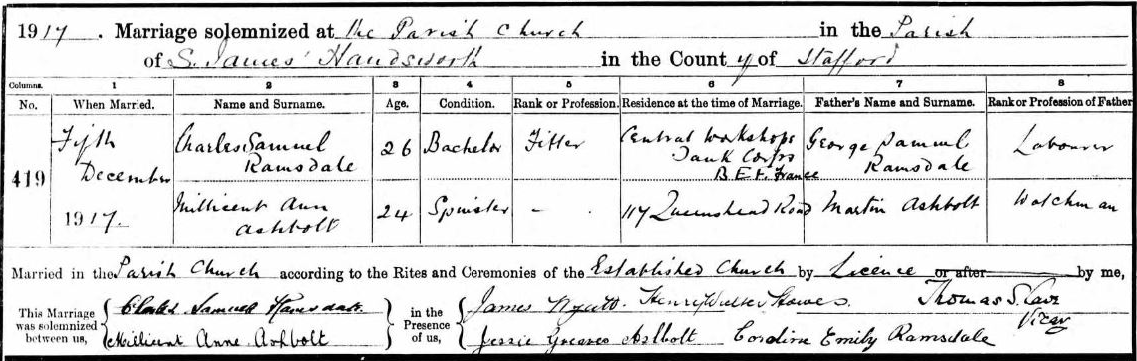 1917. Marriage solemnized at the Parish Church in the Parish
of S. James' Handsworth in the County of Stafford
Columns. 1 2 3 4 5 6 7 8
No. When Married. Name and Surname. Age. Condition. Rank or Profession. Residence at the time of Marriage. Father's Name and Surname. Rank or Profession of Father
419 Fifth December 1917. Charles Samuel Ramsdale 26 Bachelor Fitter Central Workshops Tank Corps B.E.F. France George Samuel Ramsdale Labourer
Millicent Ann Ashbolt 24 Spinster – 117 Queenshead Road Martin Ashbolt Watchman
Married in the Parish Church according to the Rites and Ceremonies of the Established Church by Licence or after by me,
This Marriage was solemnized between us, Charles Samuel Ramsdale in the Presence of us, James Henry Thomas S.
Millicent Anne Ashbolt Jessie Greaves Ashbolt Emily Ramsdale Vicar